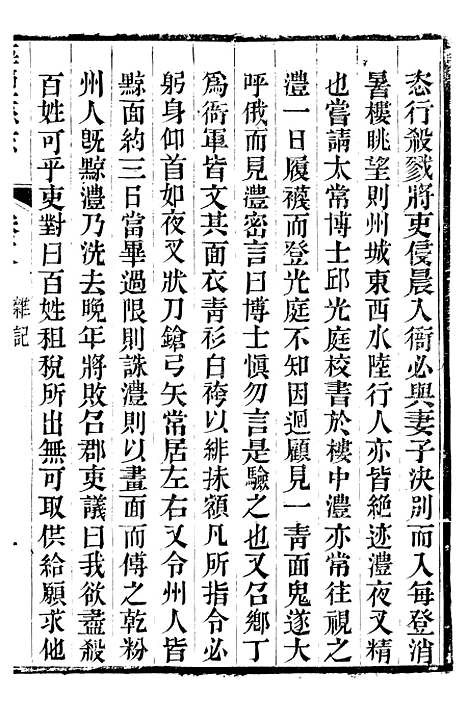 恣行殺戮將吏侵晨入衙必與妻子決別而入每登消
暑樓眺望則州城東西水陸行人亦皆絕迹澧夜叉精
也嘗請太常博士邱光庭校書於樓中澧亦常往視之
澧一日履襪而登光庭不知因迴顧見一青面鬼遂大
呼俄而見澧密言曰博士愼勿言是驗之也又召鄉丁
爲衙軍皆文其面衣青衫白袴以緋抹額凡所指令必
躬身仰首如夜叉狀刀鎗弓矢常居左右又令州人皆
黥面約三日當畢過限則誅澧則以畫面而傅之乾粉
州人旣黥澧乃洗去晚年將敗召郡吏議曰我欲盡殺
百姓可乎吏對曰百姓租稅所出無可取供給願求他
雜記